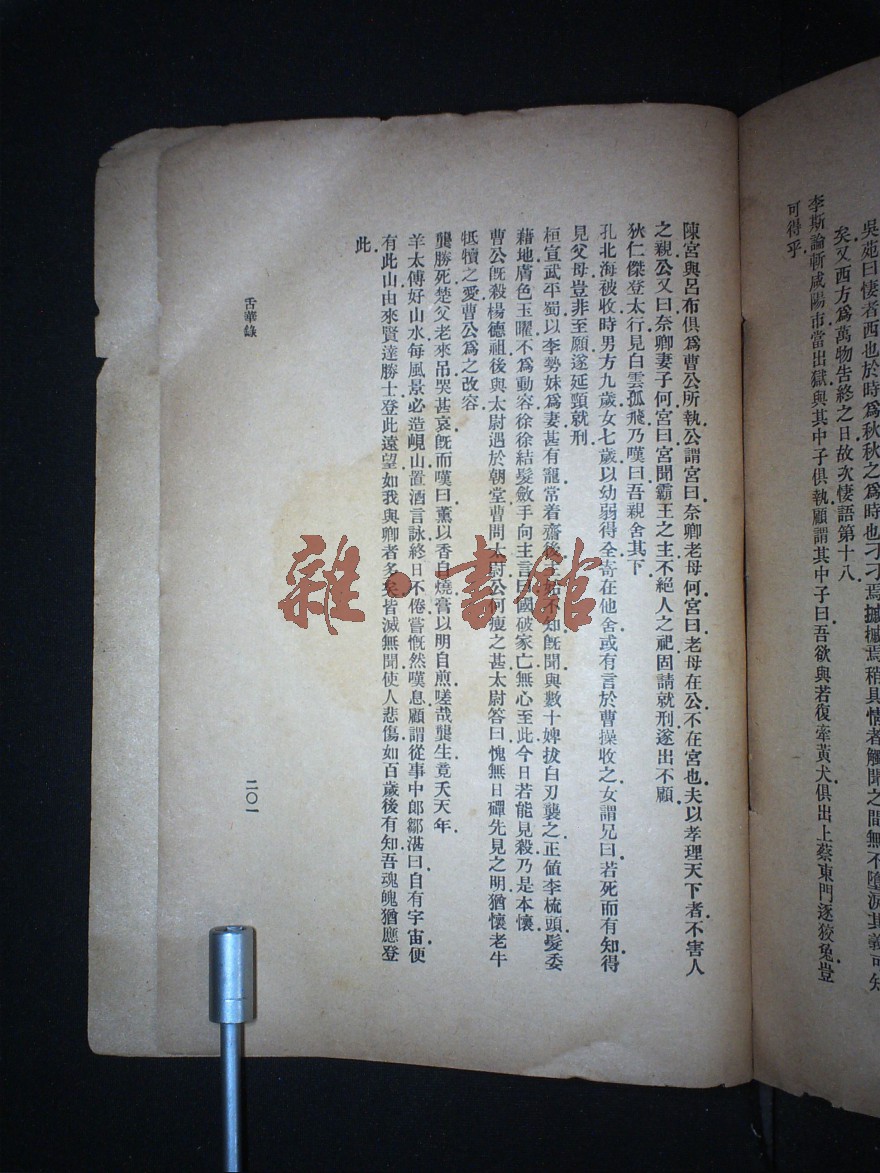 吳苑曰悽者西也於時爲秋秋之爲時也刁刁焉摵摵焉稍具情者觸聞之間無不墮淚其義可知
矣又西方爲萬物告終之日故次悽語第十八
李斯論斬咸陽市當出獄與其中子俱執顧謂其中子曰吾欲與若復牽黃犬俱出上蔡東門逐狡兔豈
可得乎
陳宮與呂布俱爲曹公所執公謂宮曰奈卿老母何宮曰老母在公不在宮也夫以孝理天下者不害人
之親公又曰奈卿妻子何宮曰宮聞霸王之主不絕人之祀固請就刑遂出不顧
狄仁傑登太行見白雲孤飛乃嘆曰吾親舍其下
孔北海被收時男方九歲女七歲以幼弱得全寄在他舍或有言於曹操收之女謂兄曰若死而有知得
見父母豈非至願遂延頸就刑
桓宣武平蜀以李勢妹爲妻甚有寵常着齋後主始不知旣聞與數十婢拔白刃襲之正値李梳頭髮委
藉地膚色玉曜不爲動容徐徐結髮斂手向主言曰國破家亡無心至此今日若能見殺乃是本懷
曹公旣殺楊德祖後與太尉遇於朝堂曹問太尉公何瘦之甚太尉答曰愧無日磾先見之明猶懷老牛
牴犢之愛曹公爲之改容
龔勝死楚父老來吊哭甚哀旣而嘆曰薰以香自燒膏以明自煎嗟哉龔生竟夭天年
羊太傅好山水每風景必造峴山置酒言詠終日不倦嘗慨然嘆息顧謂從事中郎鄒湛曰自有宇宙便
有此山由來賢達勝士登此遠望如我與卿者多矣皆滅無聞使人悲傷如百歲後有知吾魂魄猶應登
此
舌華錄
二〇一
雜·書館